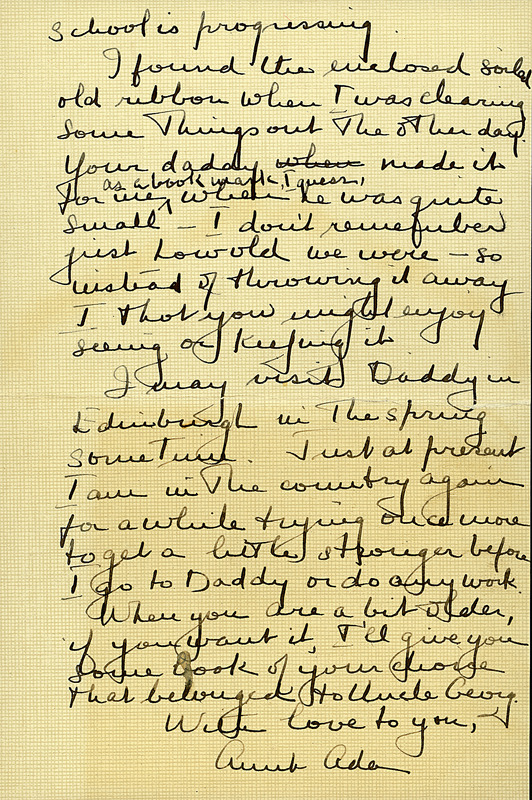 School is progressing.
I found the enclosed soiled
old ribbon when I was clearing
some things out the other day.
Your daddy when made it
as a book mark, I guess,
for me, when he was quite
small – I don't remember
just how old we were – so
instead of throwing it away
I thot you might enjoy
seeing or keeping it
I may visit Daddy in
Edinburgh in the spring
sometime. Just at present
I am in the country again
for a while trying once more
to get a little stronger before
I go to Daddy or do any work.
When you are a bit older,
if you want it, I'll give you
some book of your choice
that belonged to Uncle Georg.
With love to you,
Aunt Ada